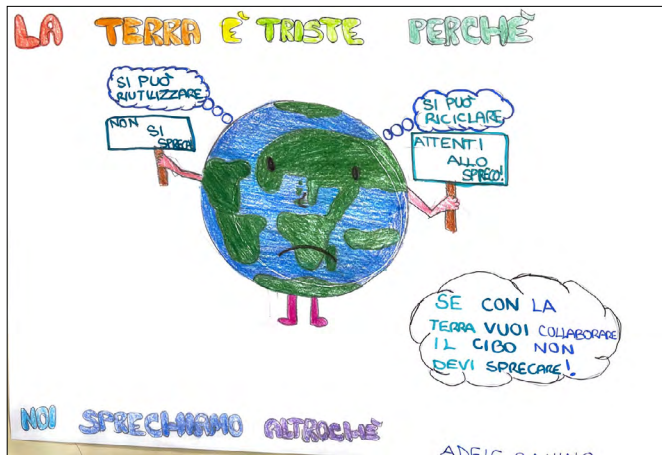 LA TERRA È TRISTE PERCHÈ
SI PUÒ
RIUTILIZZARE
NON
SI
SPRECA!
SI PUÒ
RICICLARE
ATTENTI
ALLO
SPRECO!
SE CON LA
TERRA VUOI COLLABORARE
IL CIBO NON
DEVI SPRECARE!
NOI SPRECHIAMO ALTROCHÈ